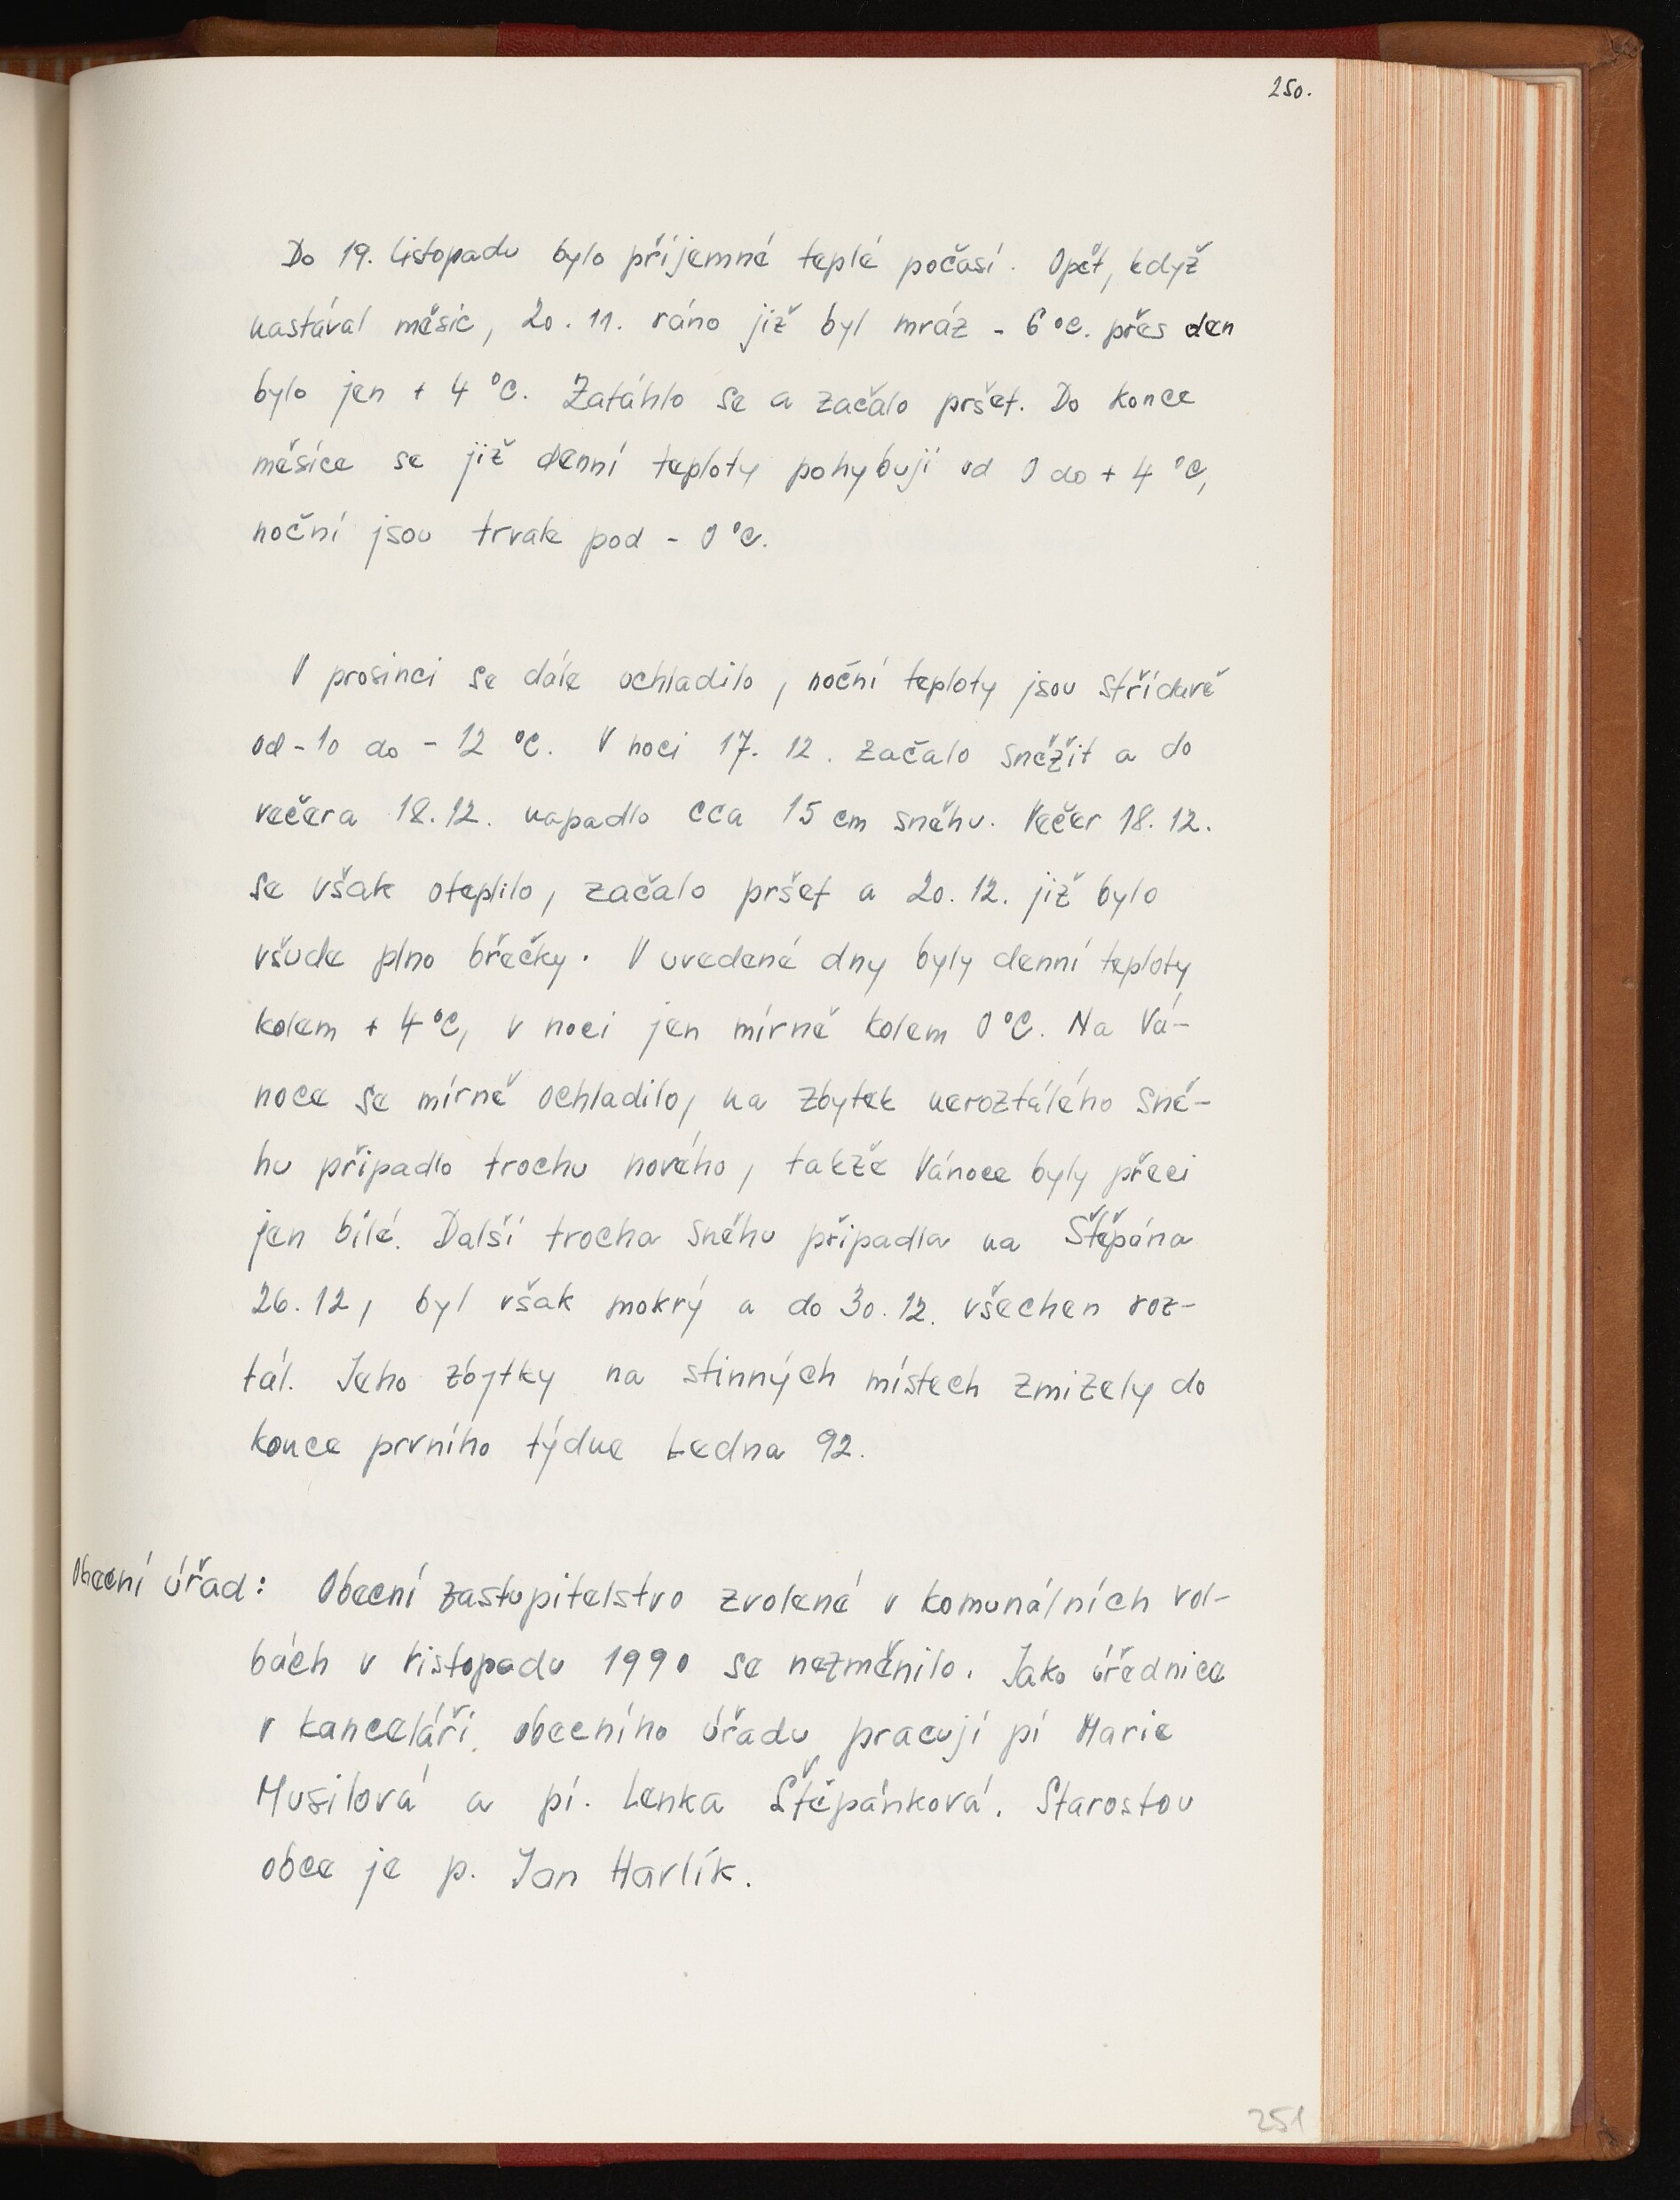 250.
Do 19. listopadu bylo příjemné teplé počasí. Opět, když
nastával měsíc, 20. 11. ráno již byl mráz - 6 °C. přes den
bylo jen + 4 °C. Zatáhlo se a začalo pršet. Do konce
měsíce se již denní teploty pohybují od 0 do + 4 °C,
noční jsou trvale pod - 0 °C.
V prosinci se dále ochladilo, noční teploty jsou střídavě
od - 10 do - 12 °C. V noci 17. 12. začalo sněžit a do
večera 18. 12. napadlo cca 15 cm sněhu. Večer 18. 12.
se však oteplilo, začalo pršet a 20. 12. již bylo
všude plno břečky. V uvedené dny byly denní teploty
kolem + 4 °C, v noci jen mírně kolem 0 °C. Na Vá-
noce se mírně ochladilo, na zbytek neroztálého sně-
hu připadlo trochu nového, takže Vánoce byly přeci
jen bílé. Další trocha sněhu připadla na Štěpána
26. 12, byl však mokrý a do 30. 12. všechen roz-
tál. Jeho zbytky na stinných místech zmizely do
konce prvního týdne ledna 92.
Obecní úřad: Obecní zastupitelstvo zvolené v komunálních vol-
bách v listopadu 1990 se nezměnilo. Jako úřednice
v kanceláři obecního úřadu pracují pí Marie
Musilová a pí. Lenka Štěpánková. Starostou
obce je p. Jan Havlík.
251